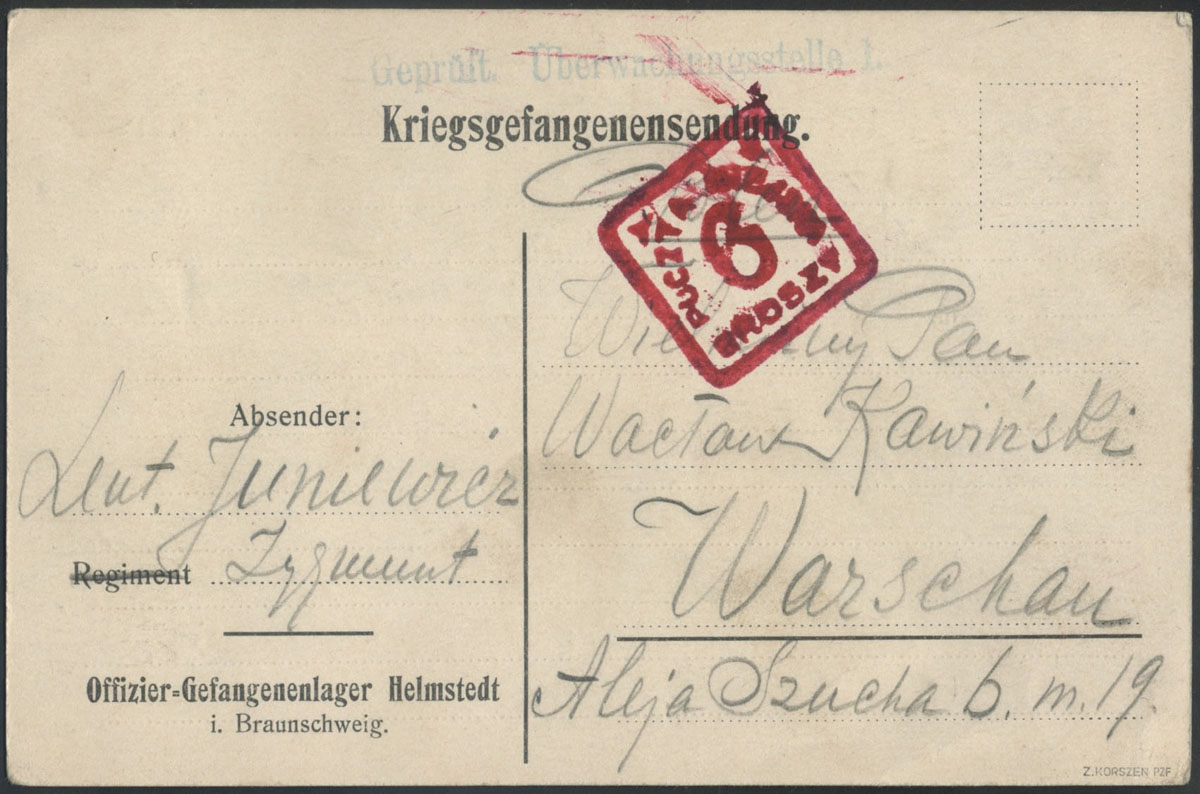 Geprüft. Überwachungsstelle 1.
Kriegsgefangenensendung.
POCZTA MIEJSKA
6
GROSZY
Pan
Wacław Kawiński
Warschau
Aleja Szucha 6. m. 19.
Absender:
Leut. Juniewicz
Regiment Zygmunt
Offizier=Gefangenenlager Helmstedt
i. Braunschweig.
Z.KORSZEŃ PZF